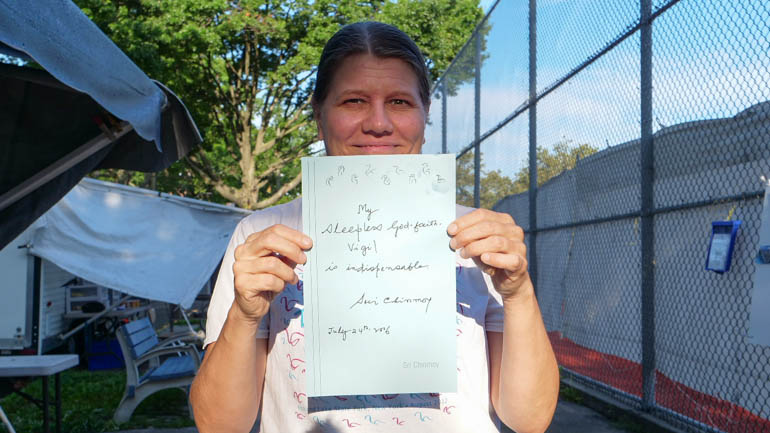 My
Sleepless God-faith-
Vigil
is indispensable.
Sri Chinmoy
July 24th, 2016
Sri Chinmoy